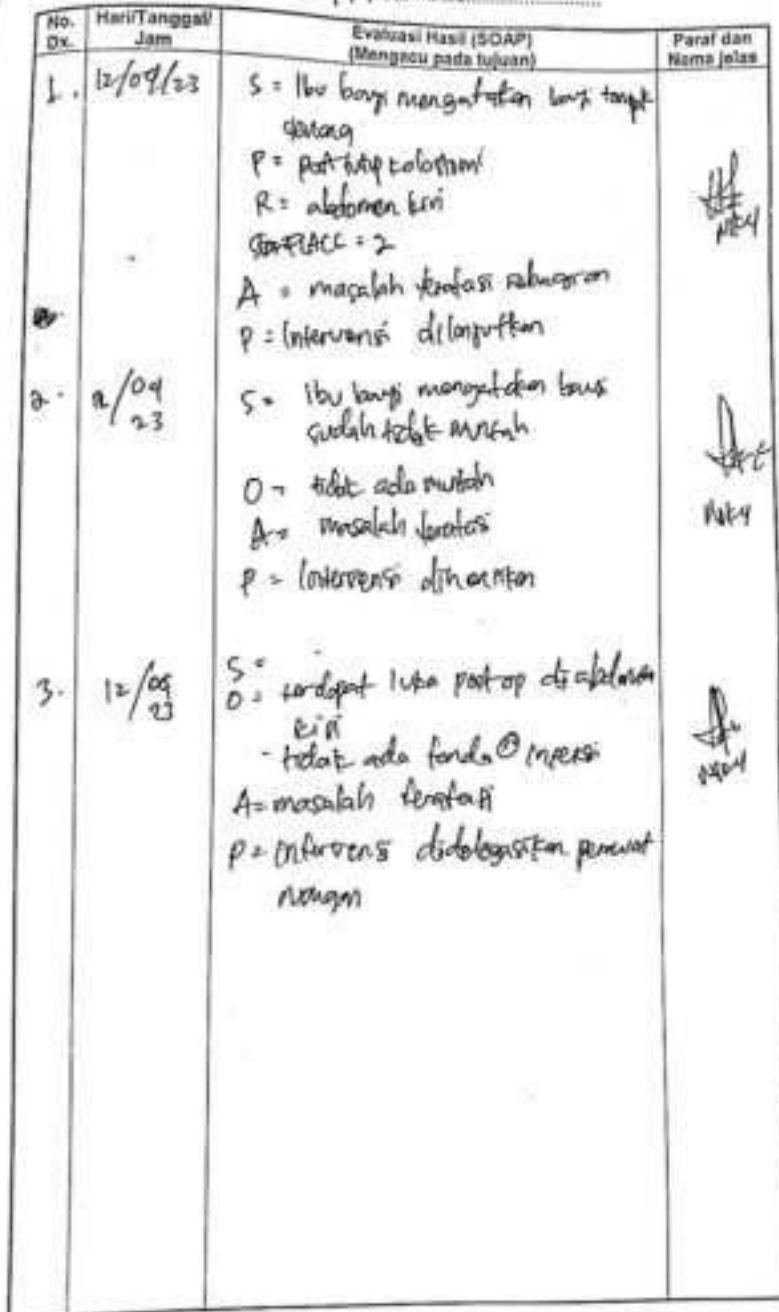 No. Dx.
Hari/Tanggal/ Jam
Evaluasi Hasil (SOAP)
(Mengacu pada tujuan)
Paraf dan Nama jelas
1. 12/09/23
S = Ibu bayi mengatakan bayi tampak
P = post tutup kolostomi
R = abdomen kiri
FLACC = 2
A = masalah teratasi sebagian
P = Intervensi dilanjutkan
2. /09 23
S = ibu bayi mengatakan bayi
sudah tidak muntah
O = tidak ada muntah
A = masalah teratasi
P = Intervensi dihentikan
3. 12/09 23
S =
O = terdapat luka post op di abdomen
kiri
- tidak ada tanda infeksi
A = masalah teratasi
P = Intervensi didelegasikan perawat
ruangan